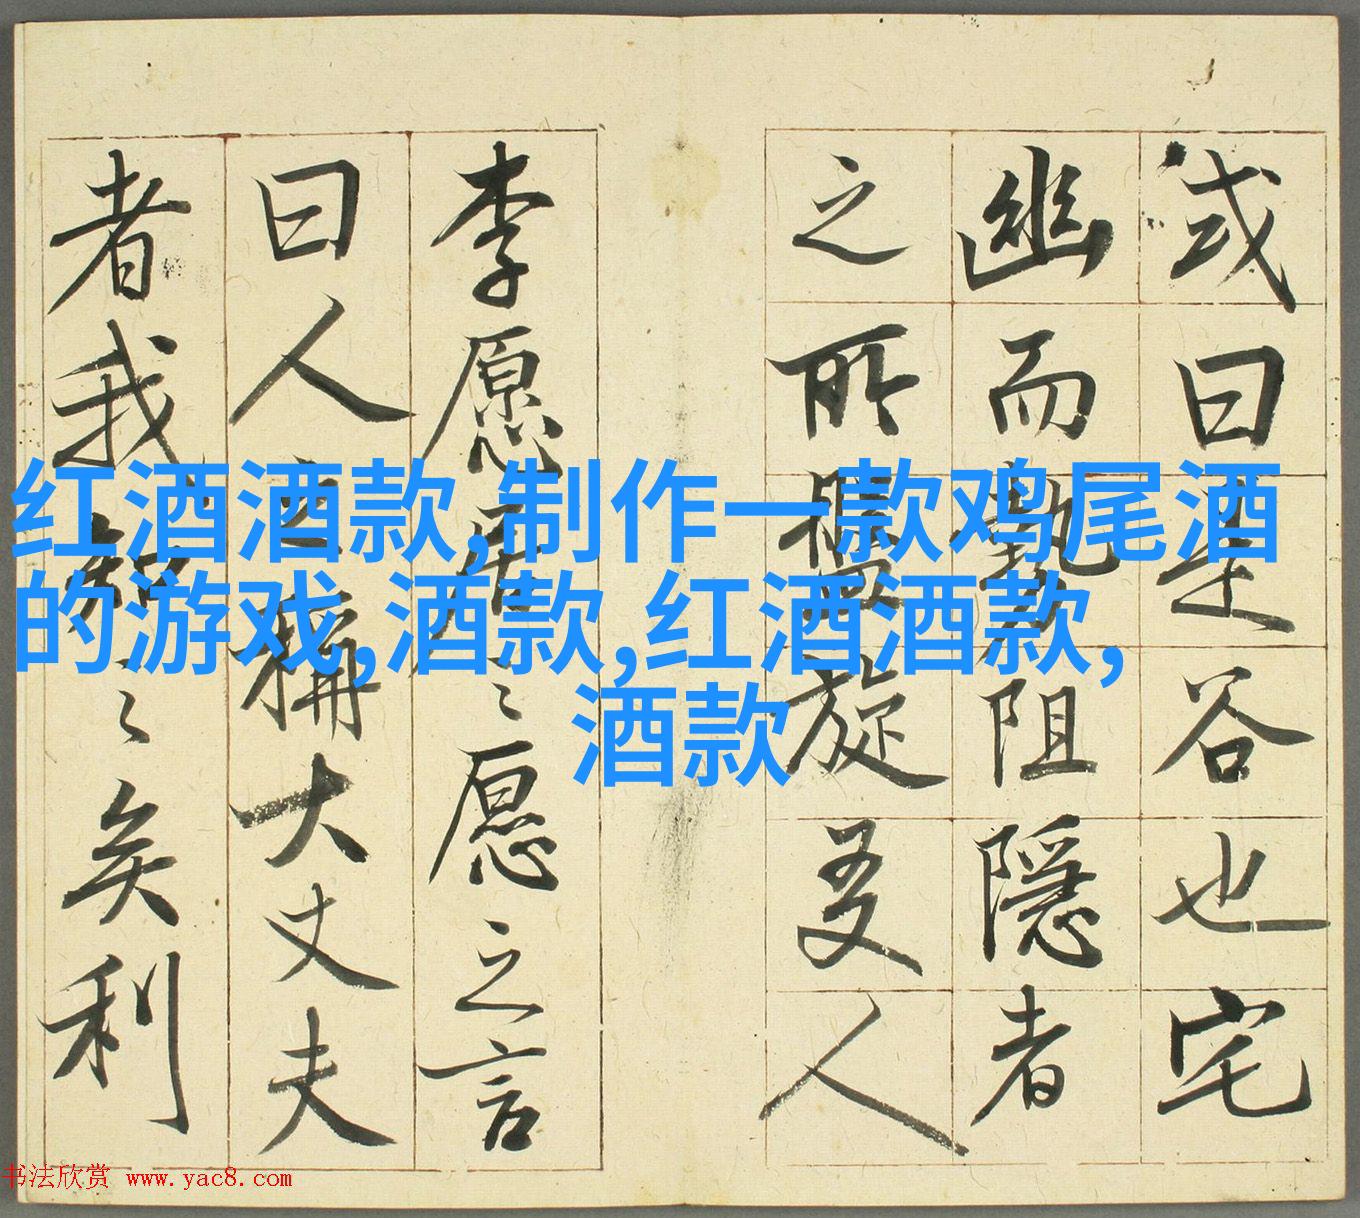 或曰是谷也宅
幽而勢阻隱者
之所盤旋友人
李愿居〻愿之言
曰人之稱大丈夫
者我知〻矣利
红酒酒款,制作一款鸡尾酒
的游戏,酒款,红酒酒款,
酒款
书法欣赏 www.yac8.com